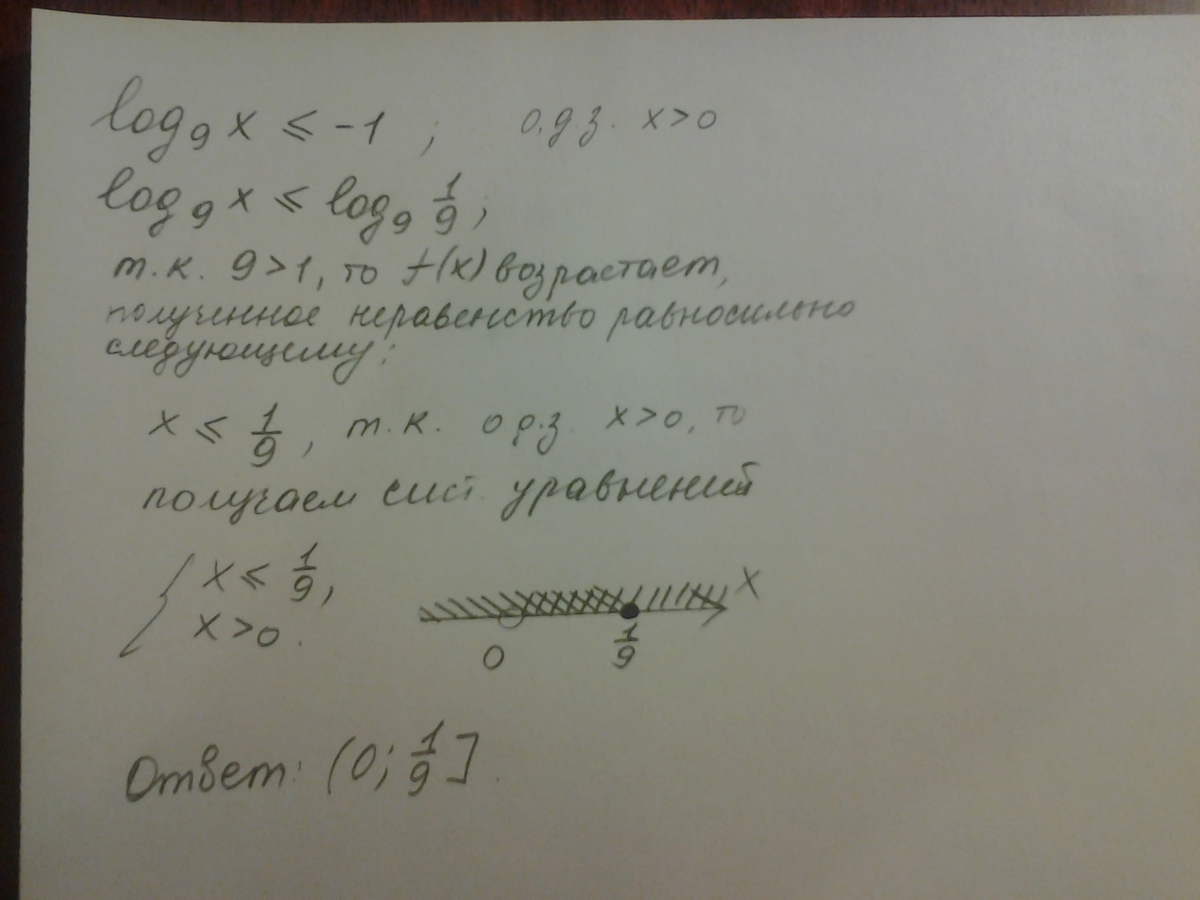 log₉ x ≤ -1 ; о.д.з. x>0
log₉ x ≤ log₉ 1/9 ;
т.к. 9>1, то f(x) возрастает,
полученное неравенство равносильно
следующему:
x ≤ 1/9, т.к. о.д.з. x>0, то
получаем сист. уравнений
{ x ≤ 1/9,
x>0.
x
0 1/9
Ответ: (0; 1/9].